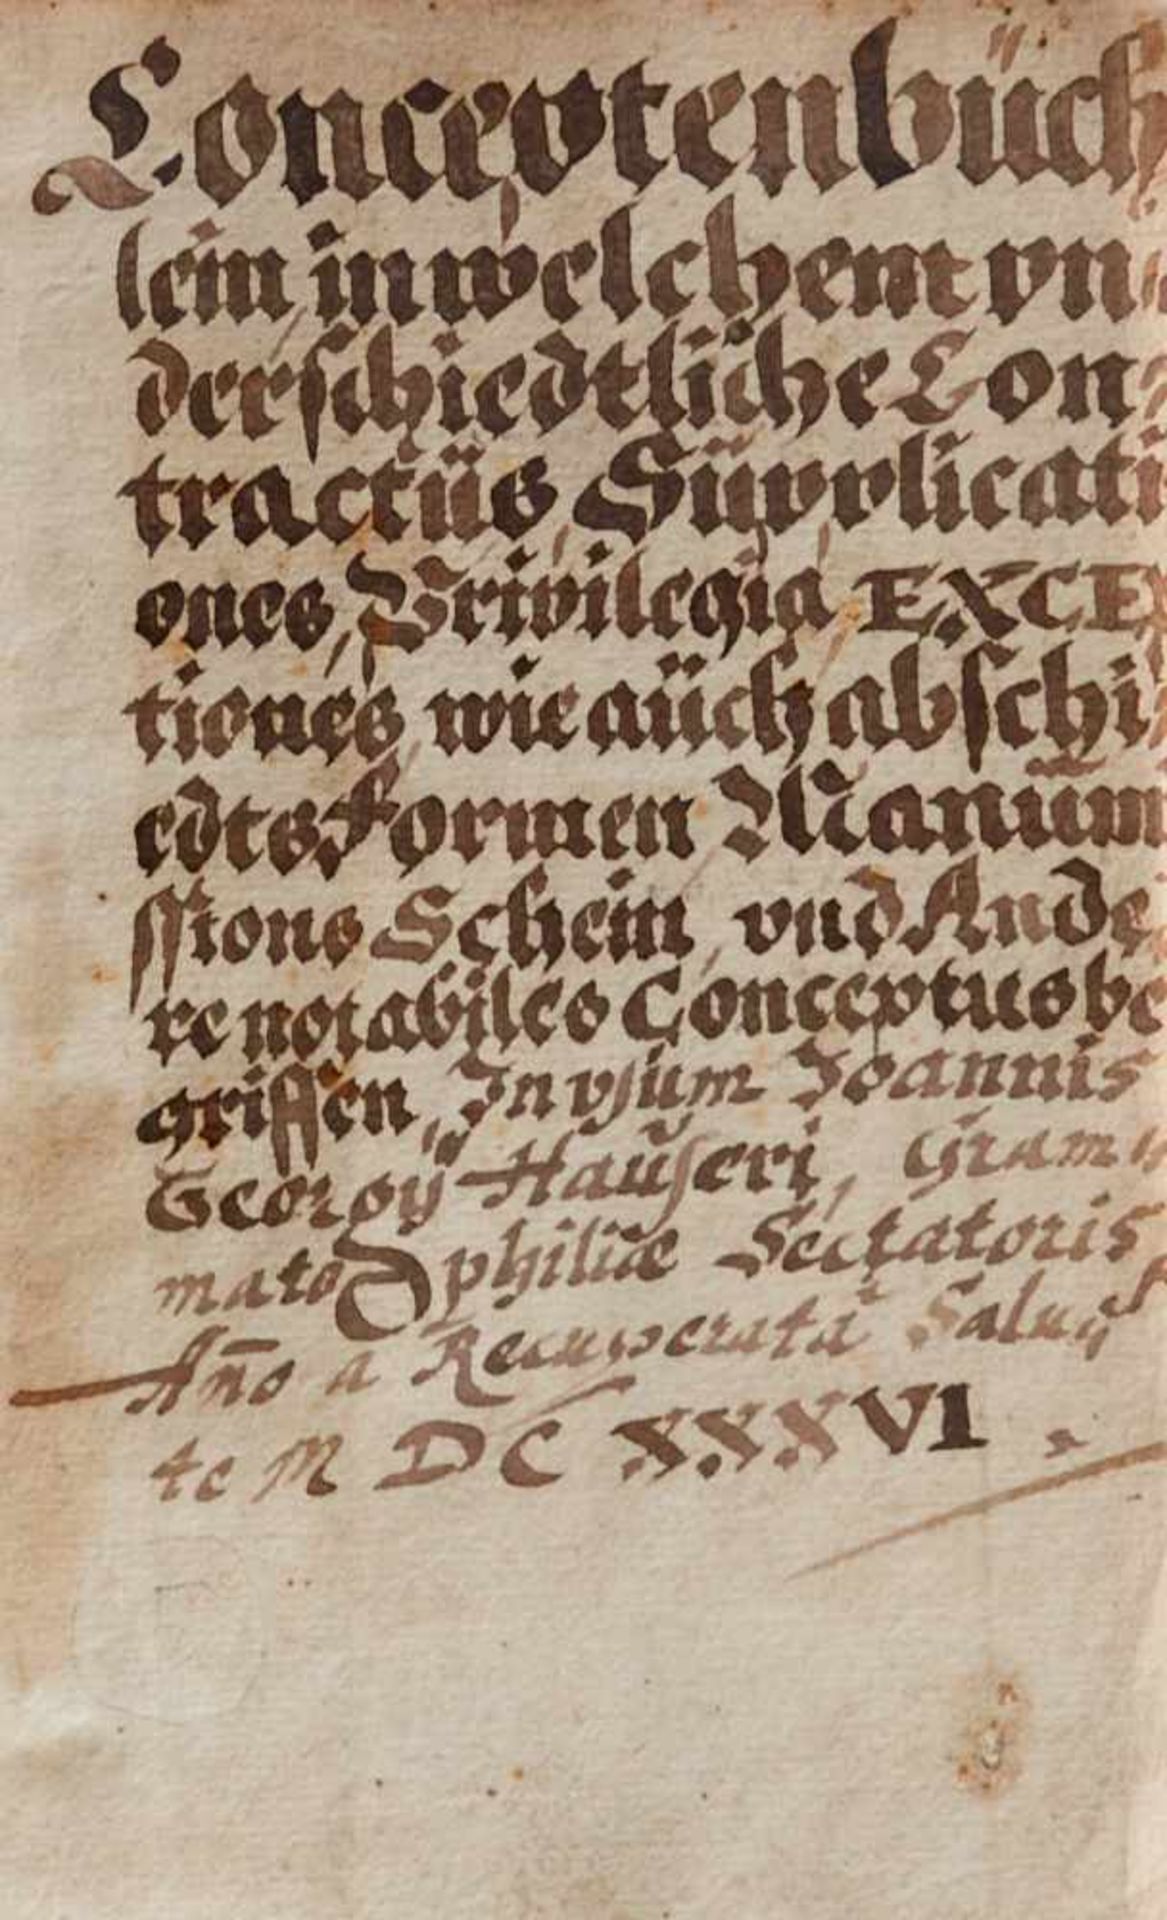 Conceptenbüch
lein in welchem vn=
derschiedtliche Con=
tractüs Süpplicati
ones, Privilegia EXCEP
tiones wie aüch abschi=
edtsformen Manüm
ssions Schein, vnd Ande
re notabiles Conceptus be
griffen, In vsum Joannis
Georgÿ Hauseri, Gram=
matosophiliæ Sectatoris
Año a Recuperata Salu
te M DC XXXVI.